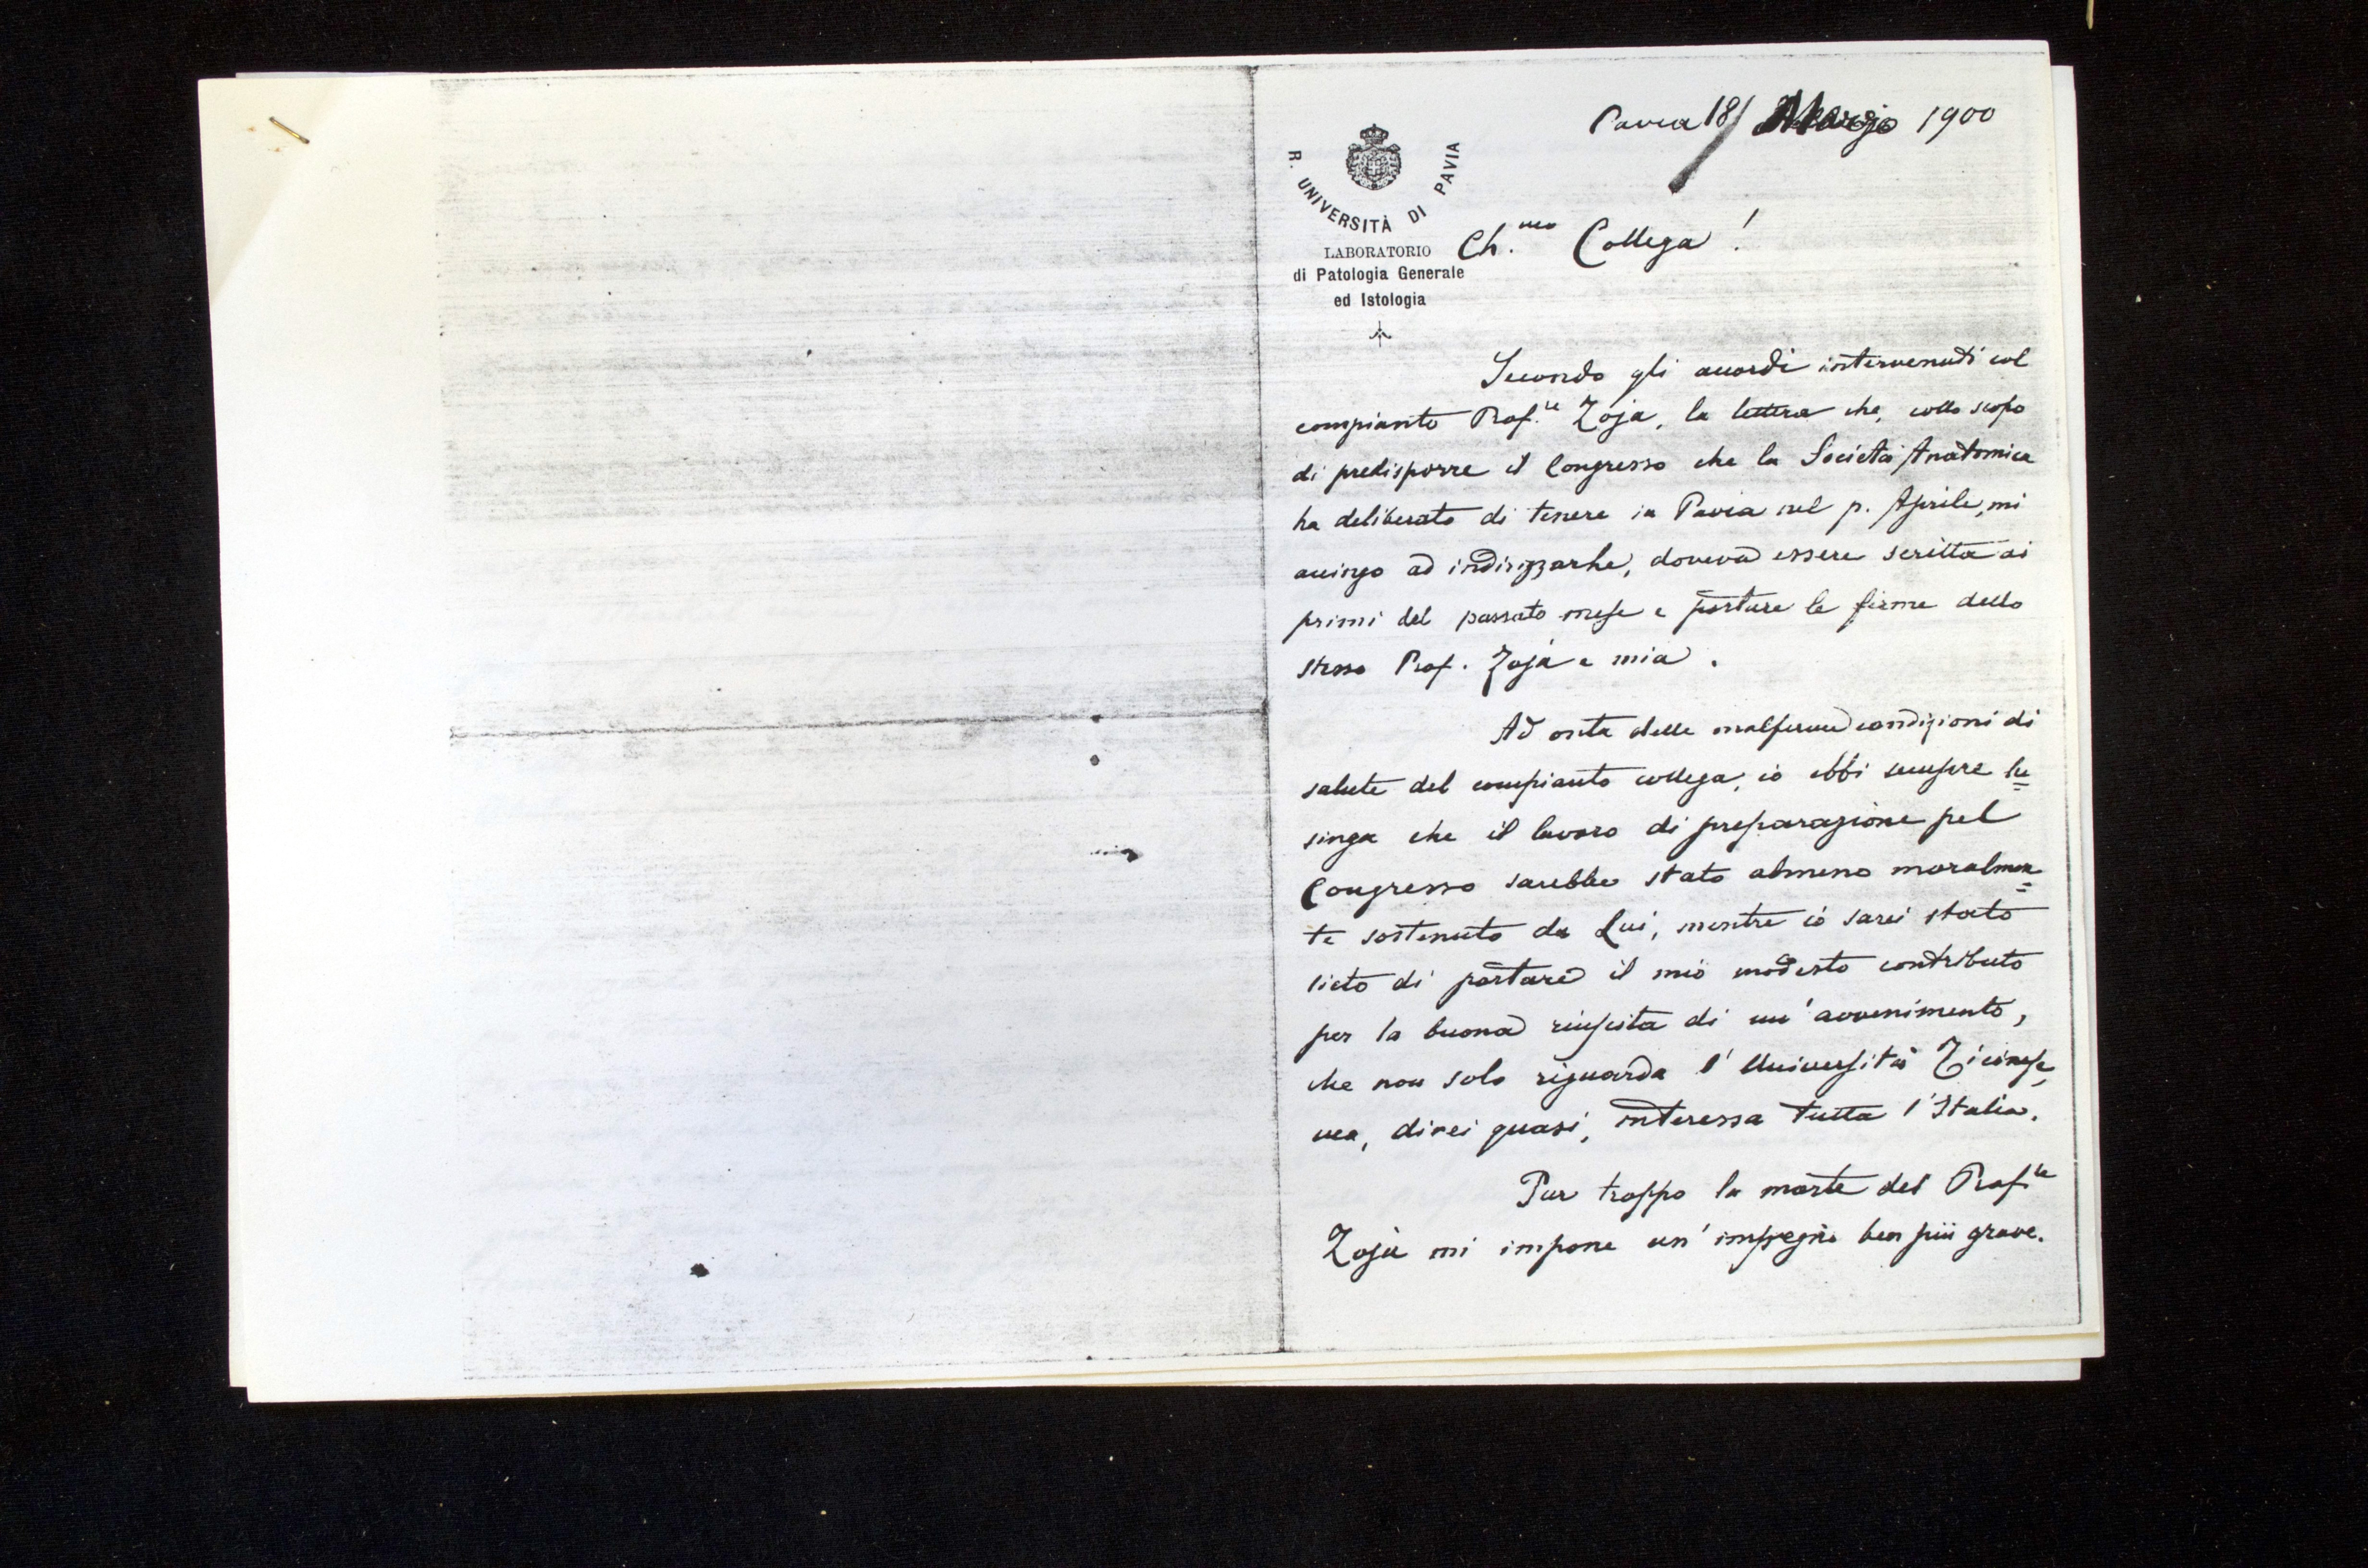 Pavia 18/ Marzo 1900
R. UNIVERSITÀ DI PAVIA
LABORATORIO
di Patologia Generale
ed Istologia
Ch.mo Collega!
Secondo gli accordi intervenuti col
compianto Prof.re Zoja, la lettera che, collo scopo
di predisporre il Congresso che la Società Anatomica
ha deliberato di tenere in Pavia nel p. Aprile, mi
accingo ad indirizzarle, doveva essere scritta ai
primi del passato mese e portare le firme dello
stesso Prof. Zoja e mia.
Ad onta delle malferme condizioni di
salute del compianto collega, io ebbi sempre lu=
singa che il lavoro di preparazione pel
Congresso sarebbe stato almeno moralmen=
te sostenuto da Lui, mentre io sarei stato
lieto di portare il mio modesto contributo
per la buona riuscita di un'avvenimento,
che non solo riguarda l'Università Ticinese,
ma, direi quasi, interessa tutta l'Italia.
Pur troppo la morte del Prof.re
Zoja mi impone un'impegno ben più grave.